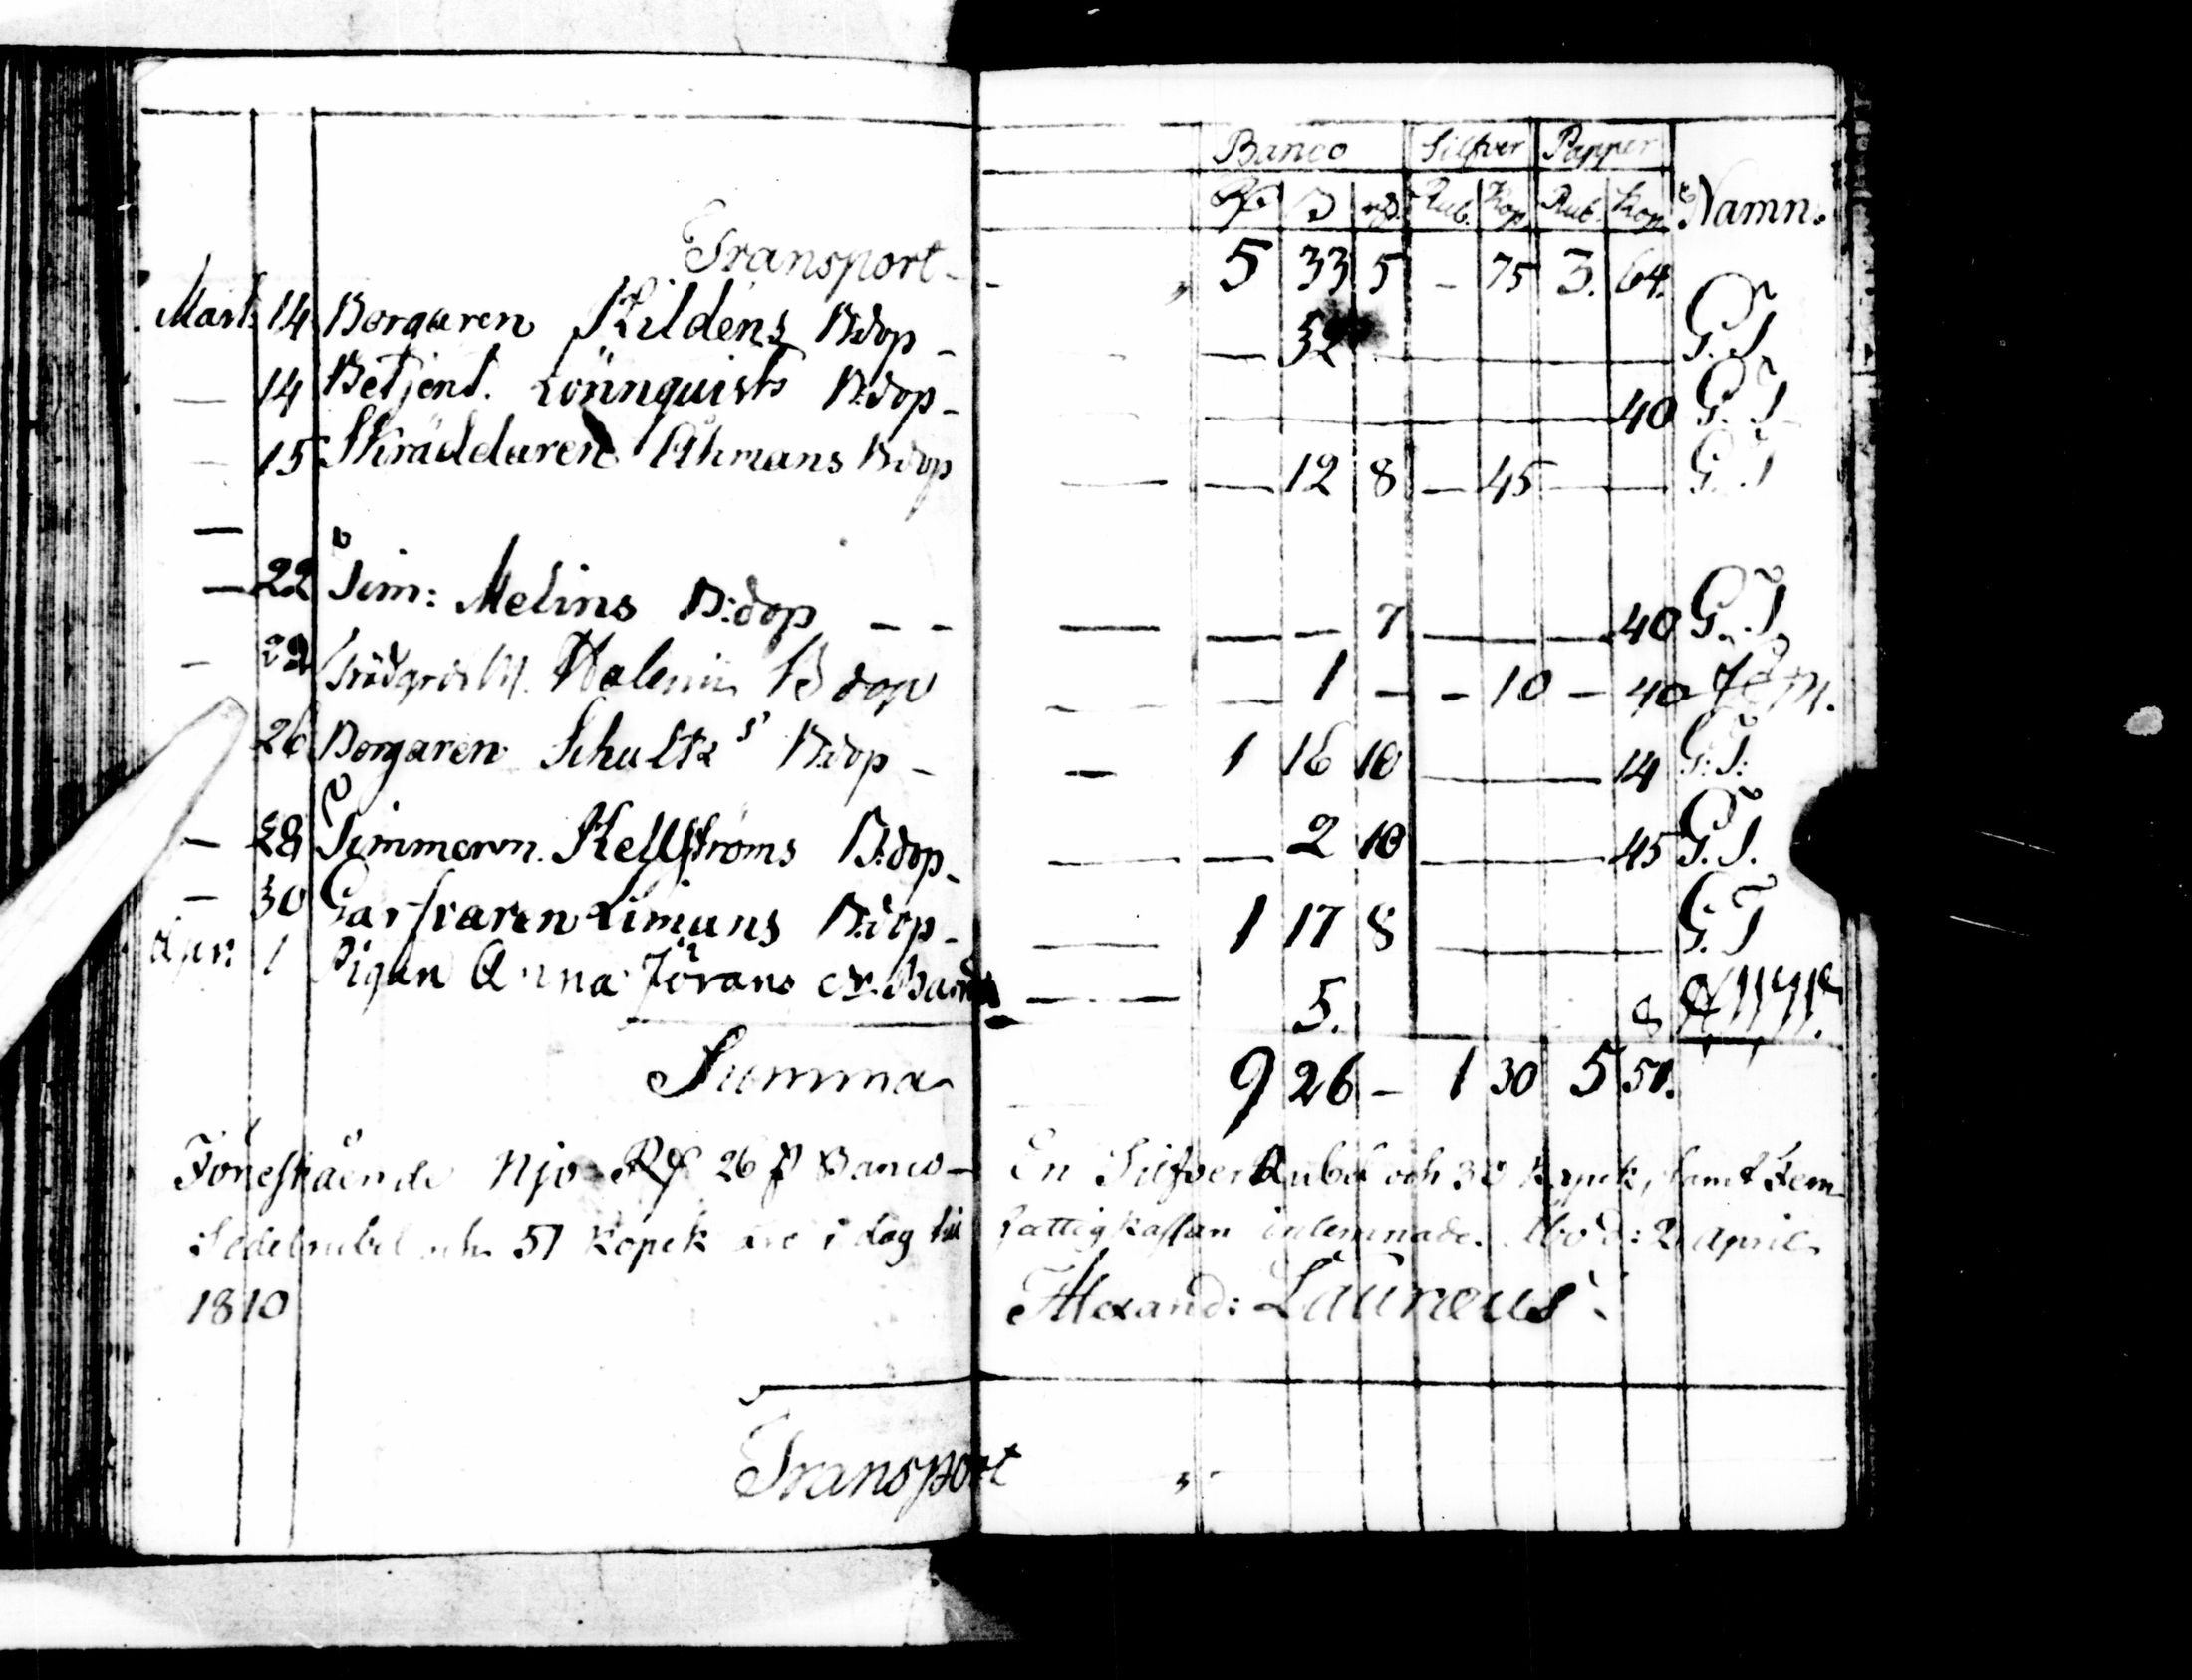 Banco Silfver Papper
Rub. Kop Rub. Kop. Namn.
Transport - 5 33 5 - 75 3. 64.
Mart. 14 Borgaren Kildens B:dop - — G.T
— 14 Betjent. Lönnquists B:dop - 40 G.T
— 15 Skräddaren Åhmans B:dop — 12 8 — 45 — G.T
—
— 22 Tim: Melins B:dop - - — 7 — 40 G.T.
— 22 B dop — 1 — - 10 — 40
26 Borgaren Schultz's B:dop - — 1 16 10 — 14 G.T.
— 28 Timmerm. Kellströms B:dop - — 2 10 — 45 G.T.
— 30 Garfvaren Limans B:dop - — 1 17 8 — G.T
Apr: 1 Pigan Anna Jörans dr. Barns — 5. 8
Summa 9 26 - 1 30 5 51.
Förestående Njo Rf 26 ß Banco- En Silfver Rubel och 30 Kopek, samt Fem
Sedelrubel och 51 Kopek äro i dag till fattigkassan inlemnade. Åbo d: 2 April
1810 Alexand: Laureus
Transport